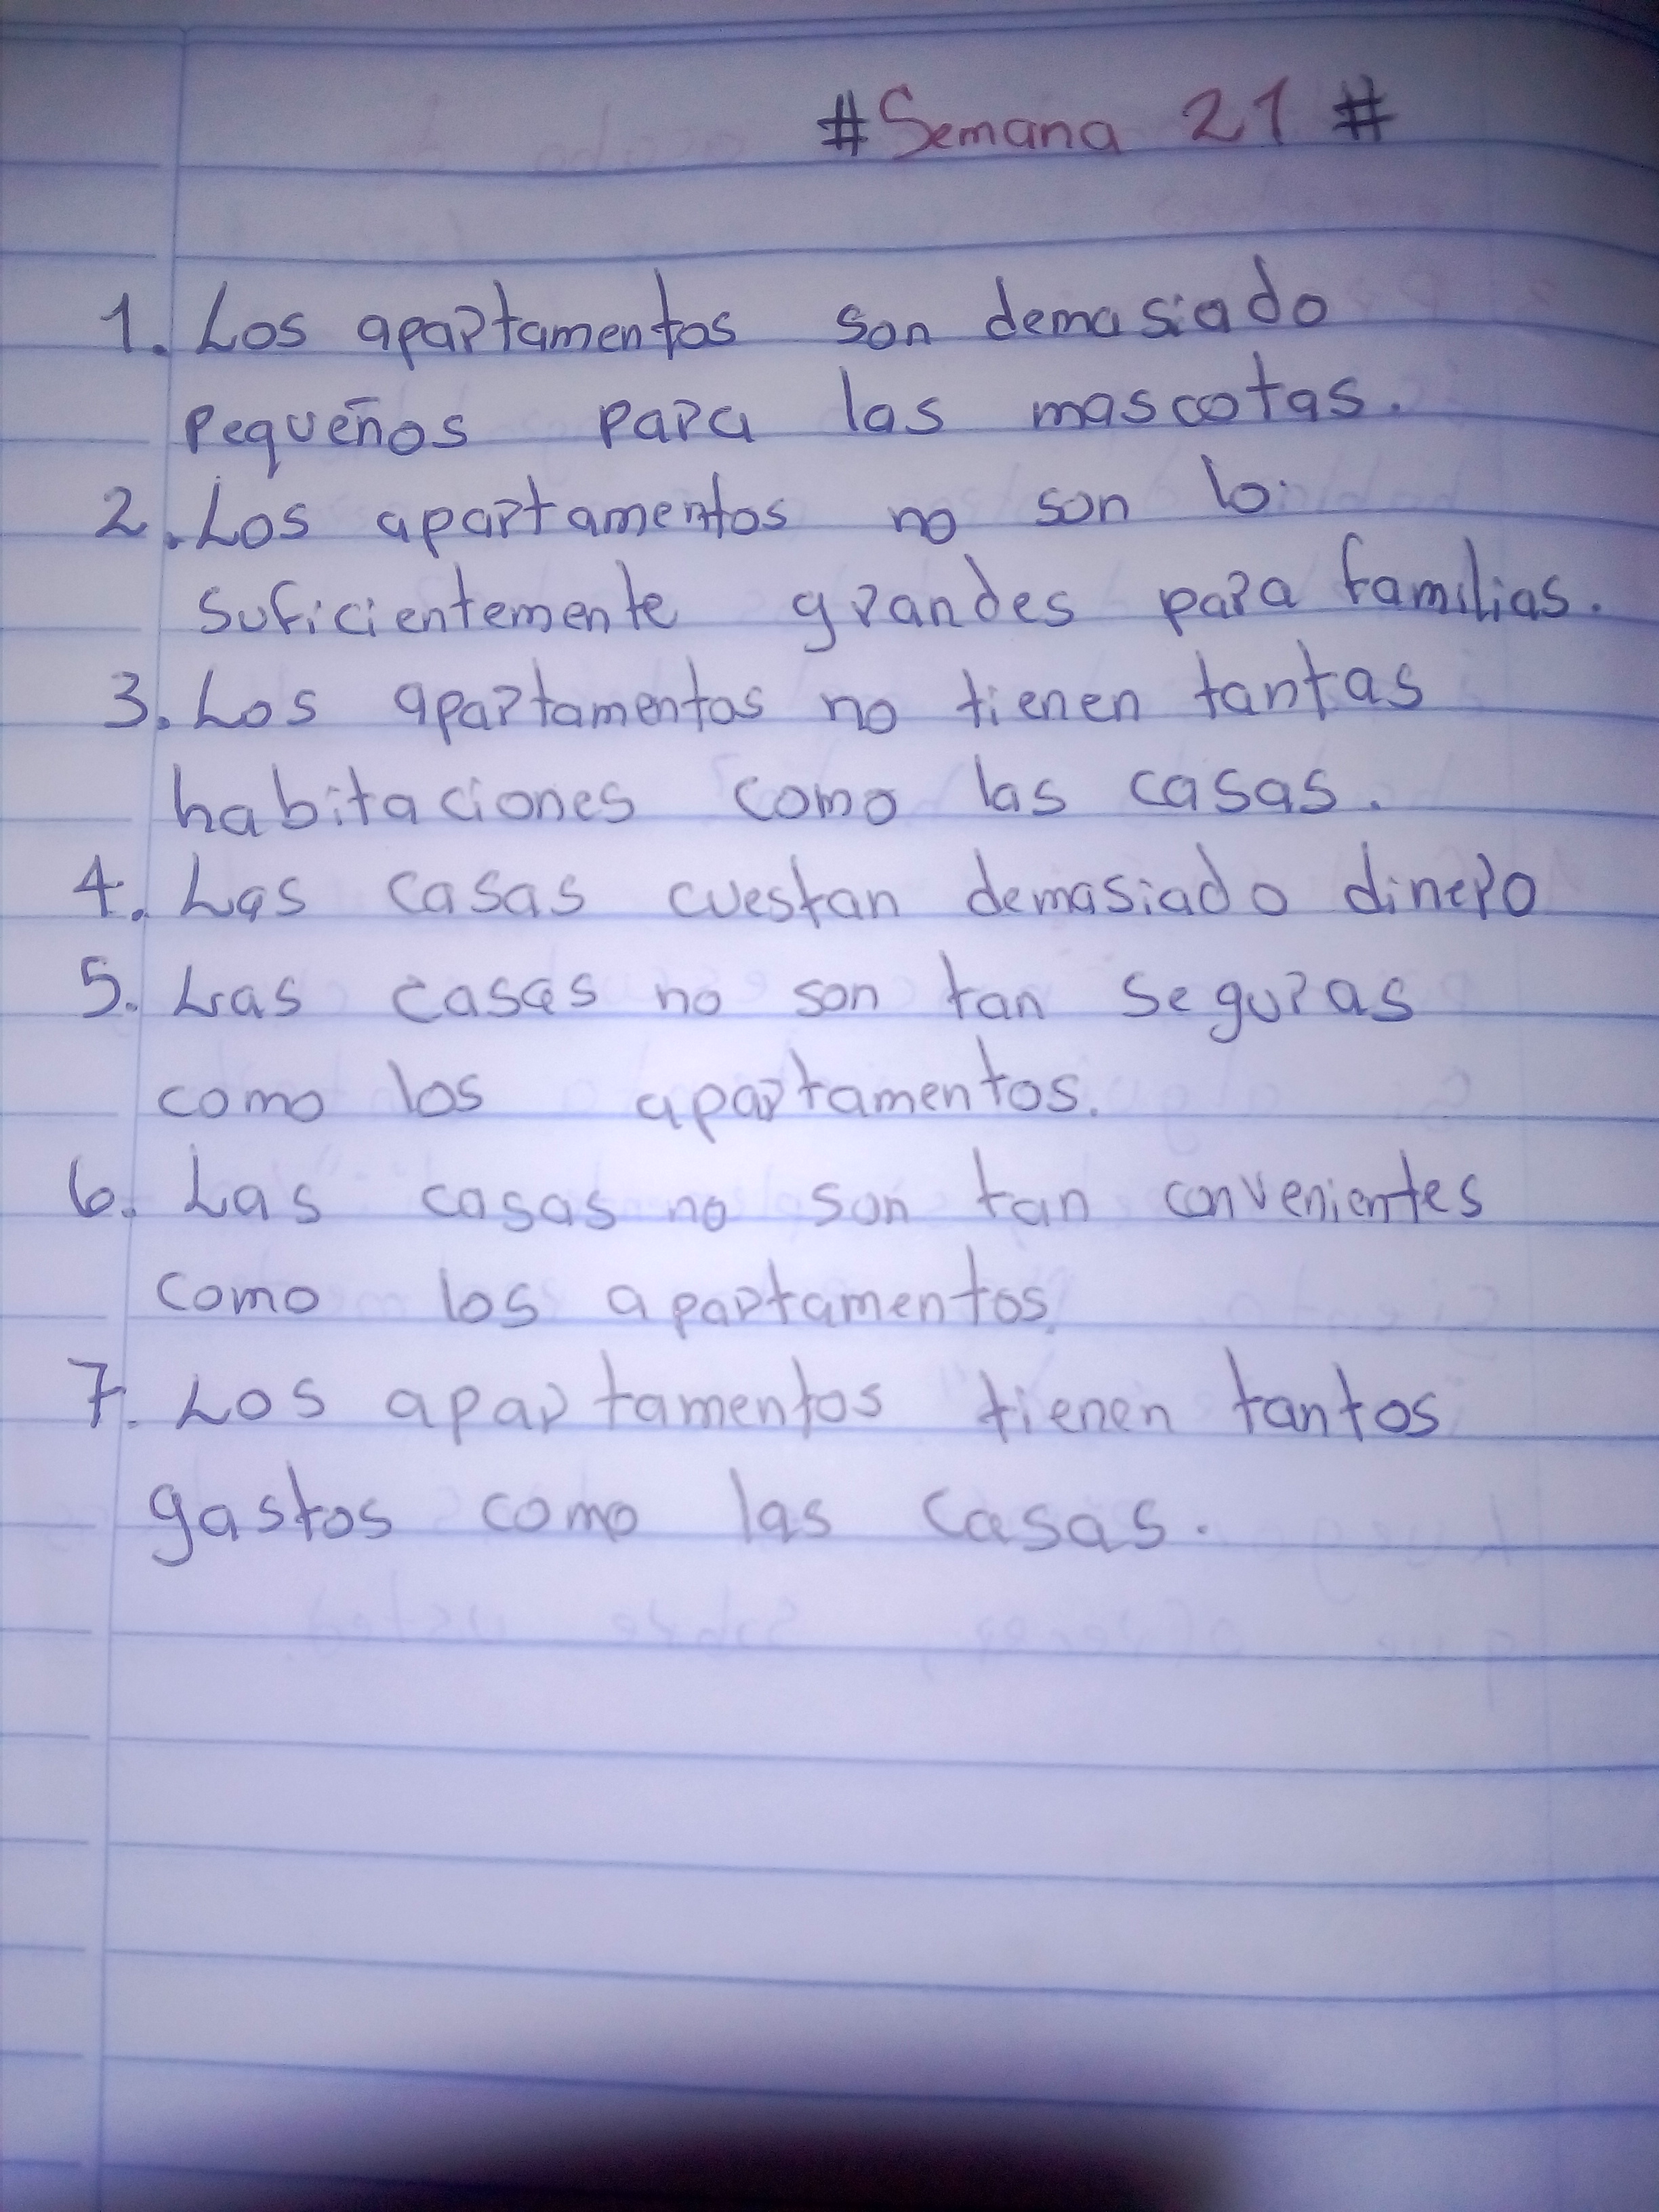 #Semana 21#
1. Los apartamentos son demasiado
pequeños para las mascotas.
2. Los apartamentos no son lo
suficientemente grandes para familias.
3. Los apartamentos no tienen tantas
habitaciones como las casas.
4. Las casas cuestan demasiado dinero
5. Las casas no son tan seguras
como los apartamentos.
6. Las casas no son tan convenientes
como los apartamentos.
7. Los apartamentos tienen tantos
gastos como las casas.